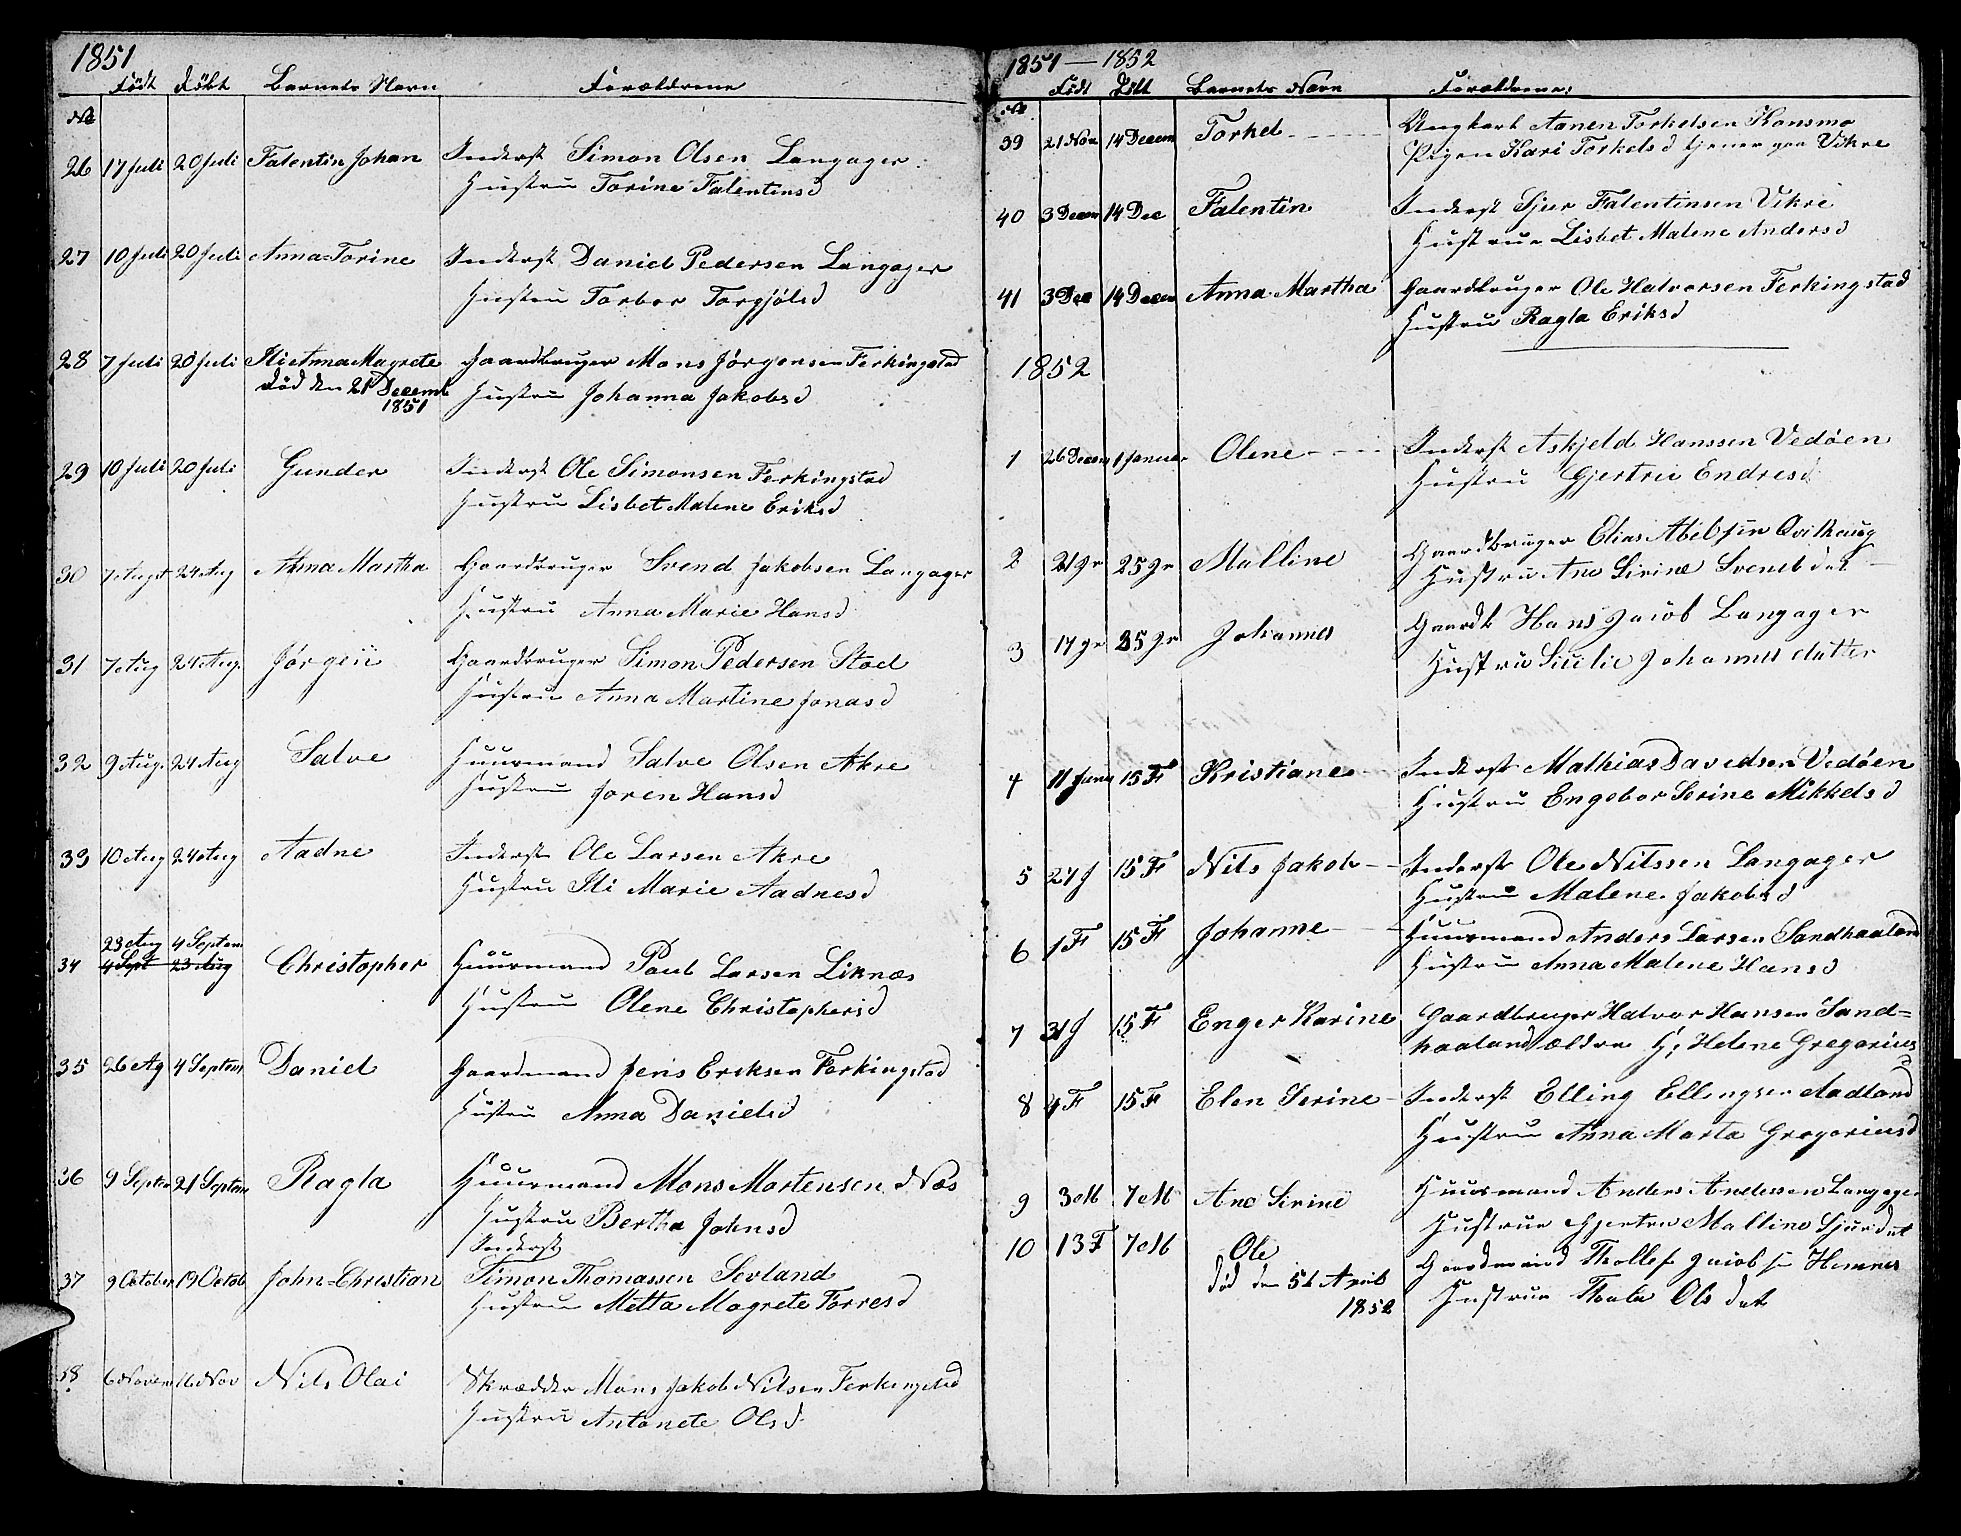 1851
Født Døbt Barnets Navn Forældrene
No
26 17 Juli 20 Juli Falentin Johan Inderst Simon Olsen Langager
Hustru Torine Falentinsd
27 10 Juli 20 Juli Anna Torine Inderst Daniel Pedersen Langager
Hustru Torbor Torgjølsd
28 7 Juli 20 Juli Ili Anna Magrete Gaardbruger Mons Jørgensen Ferkingstad
død den 21 Decemb Hustru Johanna Jakobsd
1851
29 10 Juli 20 Juli Gunder Inderst Ole Simonsen Ferkingstad
Hustru Lisbet Malene Eriksd
30 7 August 24 Aug Anna Martha Gaardbruger Svend Jakobsen Langager
Hustru Anna Marie Hansd
31 7 Aug 24 Aug. Jørgen Gaardbruger Simon Pedersen Stod
Hustru Anna Martine Jonasd
32 9 Aug. 24 Aug Salve Huusmand Salve Olsen Akre
Hustru Joren Hansd
33 10 Aug 24 Aug Aadne Inderst Ole Larsen Akre
Hustru Ili Marie Aadnesd
23 Aug 4 Septem
34 4 Sept 23 Aug Christopher Huusmand Paul Larsen Liknæs
Hustru Olene Christophersd
35 26 Ag 4 Septem Daniel Gaardmand Jens Eriksen Ferkingstad
Hustru Anna Danielsd
36 9 Septem 21 Septem Ragla Huusmand Mons Mortensen Næs
Hustru Bertha Johnsd
Inderst
37 9 October 19 Octob John=Christian Simon Thomassen Sevland
Hustru Metta Magrete Torresd
38 6 Novem 16 Nov Nils Olai Skrædder Mons Jakob Nilsen Ferkingstad
Hustru Antonete Olsd
1851 — 1852
Født Døbt Barnets Navn Forældrene:
No
39 21 Nov 14 Decem Torkel Ungkarl Aanen Torkelsen Konsmo
Pigen Kari Torkelsd tjener paa Vikre
40 3 Decem 14 Dec Falentin Inderst Sjur Falentinsen Vikre
Hustrue Lisbet Malene Andersd
41 3 Dec 14 Decem Anna Martha Gaardbruger Ole Halvorsen Ferkingstad
Hustru Ragla Eriksd
1852
1 26 Decem 1 Januar Olene Inderst Askjeld Hanssen Vedøen
Hustru Gjertrie Endresd
2 21 Jr 25 Jr Malline Gaardbruger Elias Abelsen Qvilhaug
Hustru Ane Sirine Svensdat
3 17 Jr 25 Jr Johannes Gaardb Hans Jacob Langager
Hustru Sicilie Johannesdatter
4 11 Janu 15 F Kristiane Inderst Mathias Davidsen Vedøen
Hustru Engebor Serine Mikkelsd
5 27 J 15 F Nils Jakob Inderst Ole Nilssen Langager
Hustru Malene Jakobsd
6 1 F 15 F Johanne Huusmand Anders Larsen Sandhaaland
Hustru Anna Malene Hansd
7 31 J 15 F Enger Karine Gaardbruger Halvor Hansen Sand=
haaland ældre H; Helene Gregorius
d
8 4 F 15 F Elen Serine Inderst Elling Ellingsen Aadland
Hustru Anna Marta Gregoriusd
9 3 M 7 M Ane Sirine Huusmand Anders Andersen Langager
Hustrue Gjertru Malline Sjurdat
10 13 F 7 M Ole Gaardmand Thollef Jacobsen Hemnes
død den 5t April Hustrue Thala Olsdat
1852